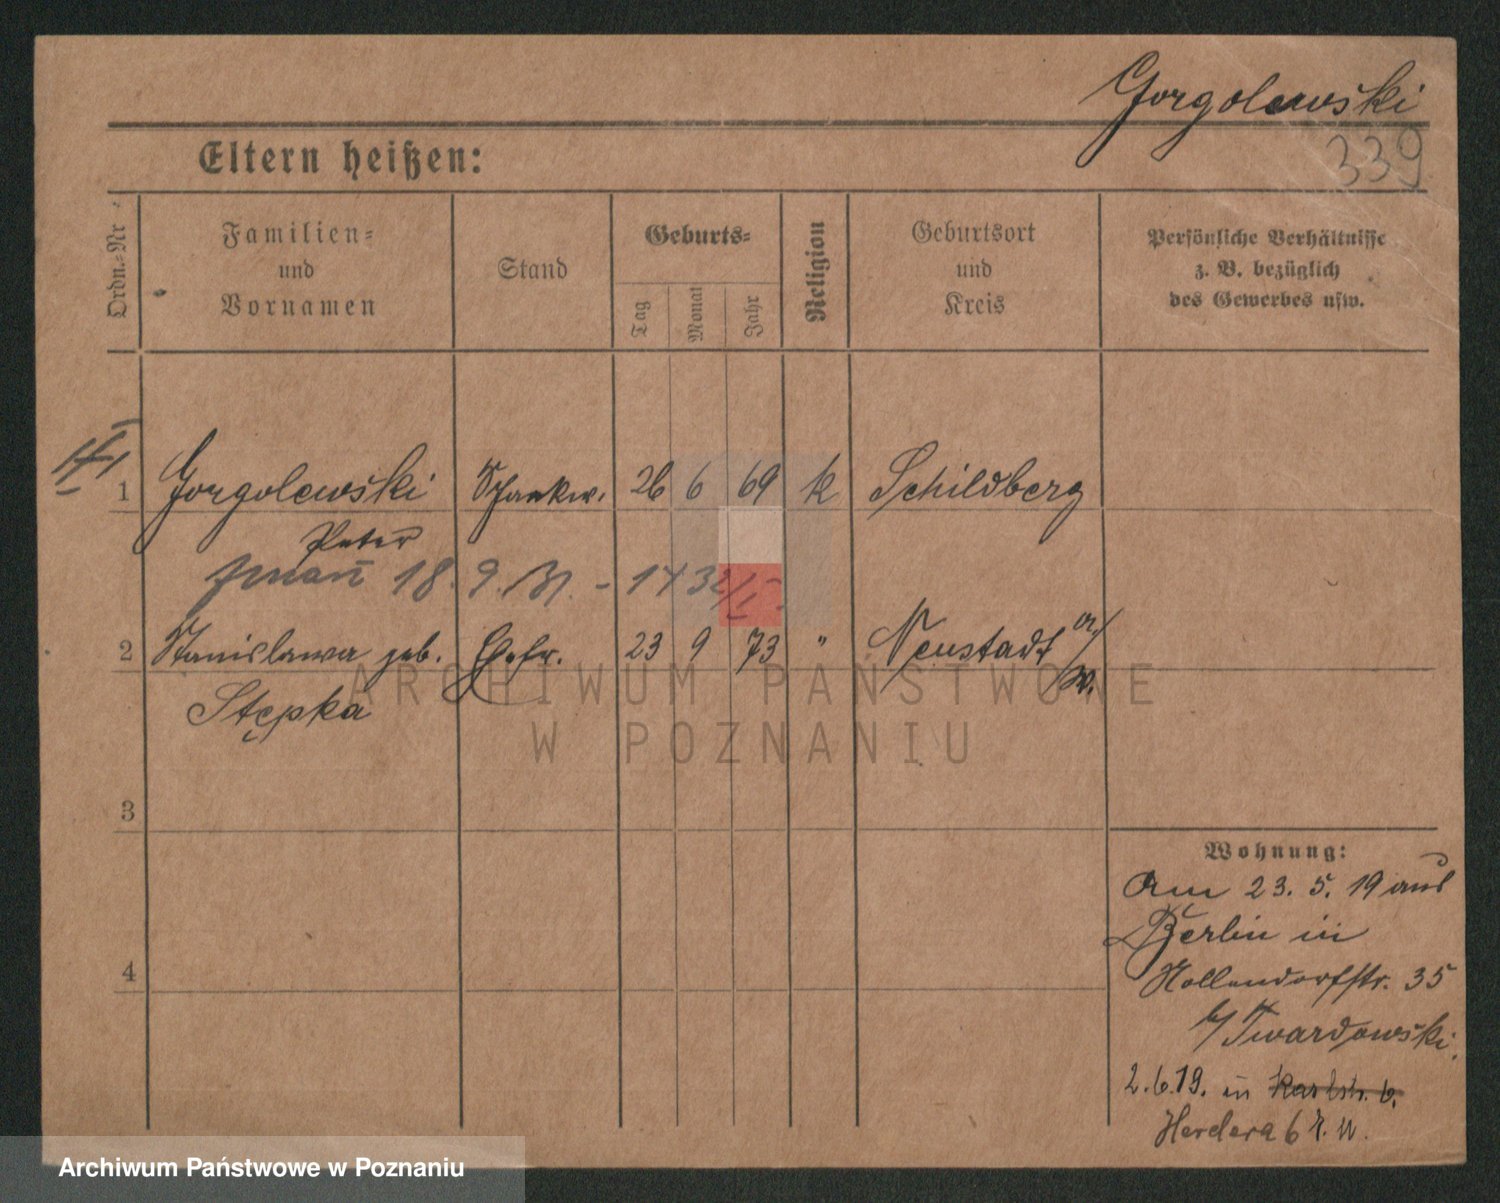 Gorgolewski
339
Eltern heißen:
Ordn.-Nr
Familien-
und
Vornamen
Stand
Geburts-
Tag
Monat
Jahr
Religion
Geburtsort
und
Kreis
Persönliche Verhältnisse
z. B. bezüglich
des Gewerbes usw.
1 Gorgolewski Schankw. 26 6 69 k Schildberg
Peter
zmarł 18. 9. 31. - 1432/I.
2 Stanislawa geb. Ehefr. 23 9 73 " Neustadt a/W.
Stępka
3
4
Wohnung:
Am 23. 5. 19 aus
Berlin in
Nollendorfstr. 35
b/Twardowski.
2.6.19. in Karlstr. 6.
Herdera 6
ARCHIWUM PAŃSTWOWE
W POZNANIU
Archiwum Państwowe w Poznaniu